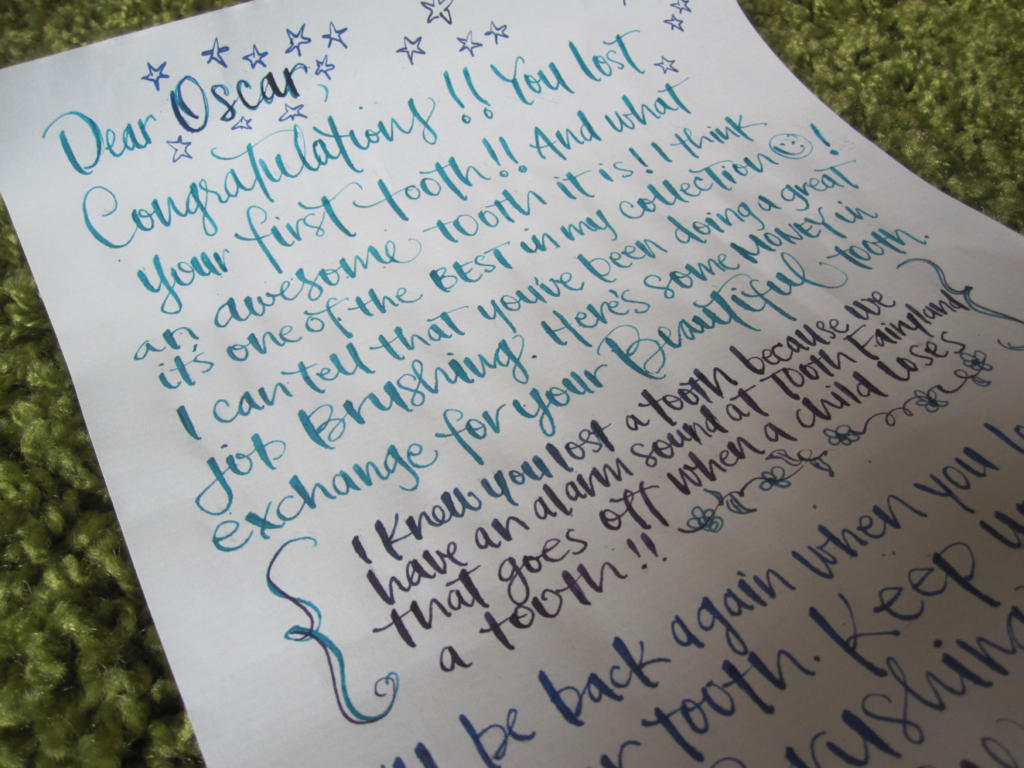 Dear Oscar,
Congratulations!! You lost
your first tooth!! And what
an awesome tooth it is! I think
it's one of the BEST in my collection☺!
I can tell that you've been doing a great
job Brushing. Here's some MONEY in
exchange for your Beautiful tooth.
I knew you lost a tooth because we
have an alarm sound at Tooth Fairyland
that goes off when a child loses
a tooth!!
be back again when you
tooth. Keep